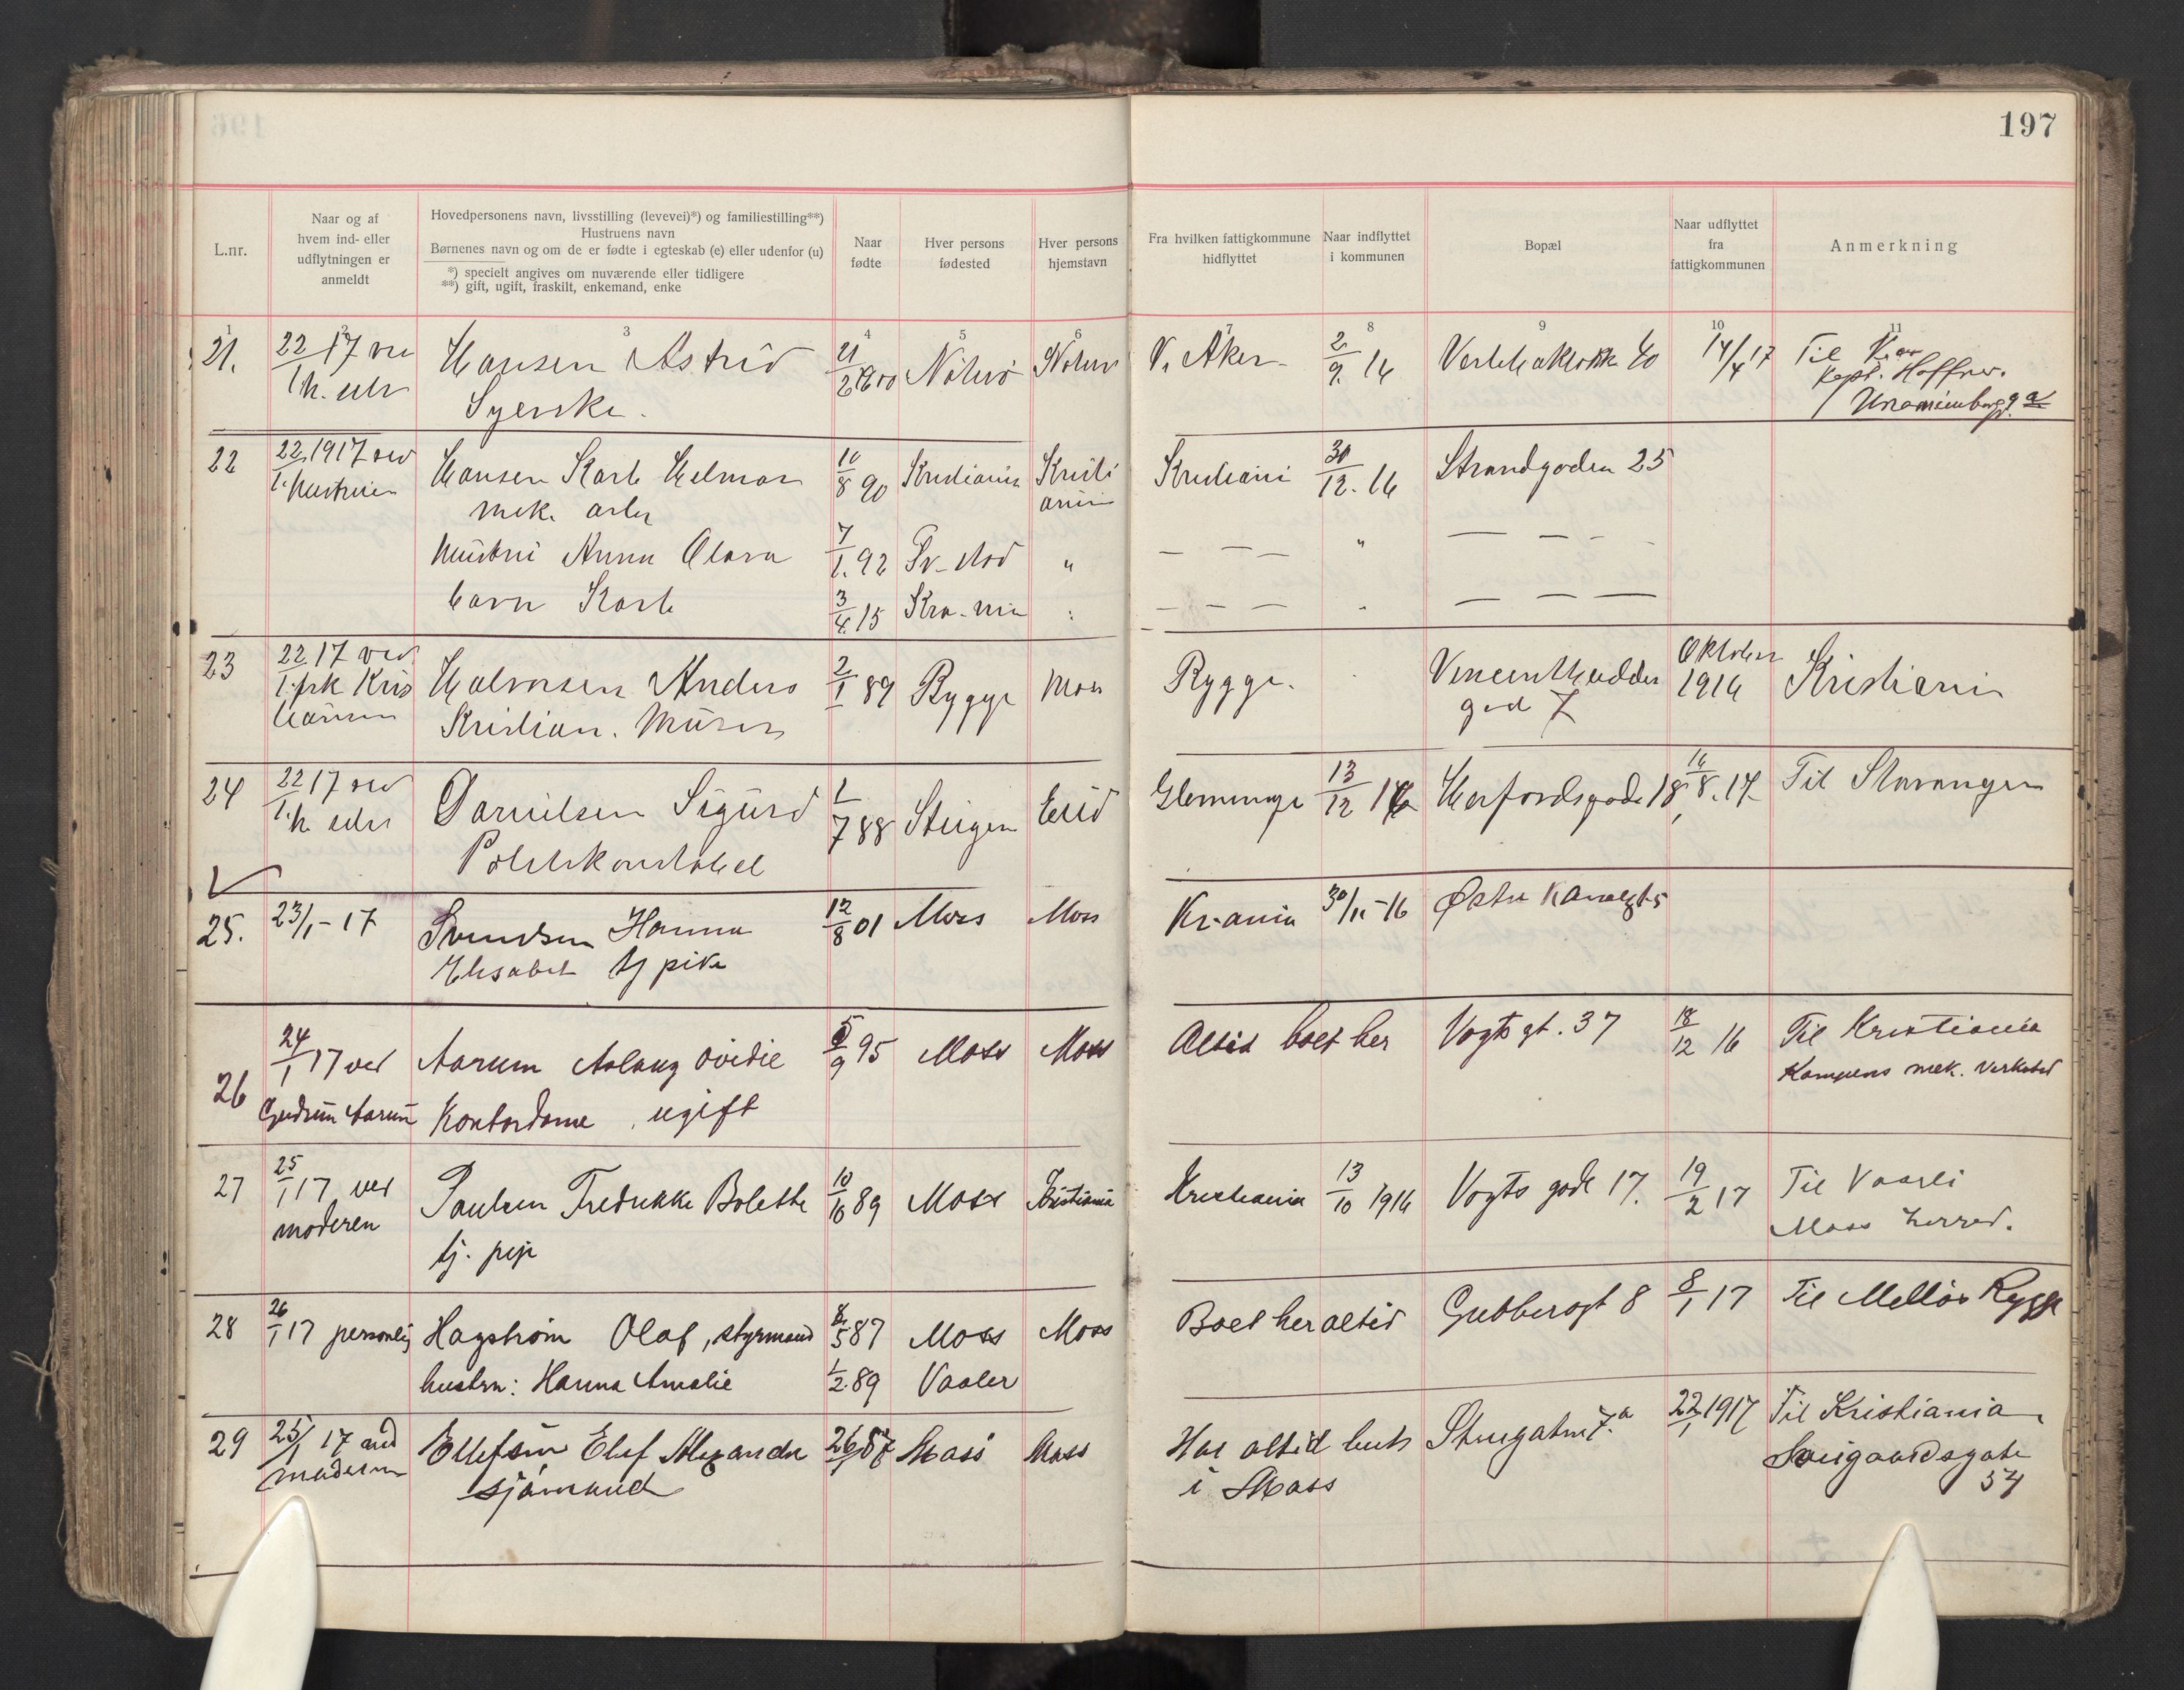 197
L.nr.
Naar og af
hvem ind- eller
udflytningen er
anmeldt
Hovedpersonens navn, livsstilling (levevei)*) og familiestilling**)
Hustruens navn
Børnenes navn og om de er fødte i egteskab (e) eller udenfor (u)
*) specielt angives om nuværende eller tidligere
**) gift, ugift, fraskilt, enkemand, enke
Naar
fødte
Hver persons
fødested
Hver persons
hjemstavn
Fra hvilken fattigkommune
hidflyttet
Naar indflyttet
i kommunen
Bopæl
Naar udflyttet
fra
fattigkommunen
Anmerkning
1 3 4 5 6 7 8 9 10 11
21. 22/1 17 Hansen Astrid 21/2 1900 Nøterø Nøterø V. Aker 2/9. 16 40 14/4 17 Til
Syerske. Kapt. Hoffner.
22 22/1. 1917 ved Hansen Karl Helmar 10/8 90 Kristiania Kristi Kristiani 30/12. 16 Strandgaden 25
Hustruen mek. arb. ania
Hustru Anna Clara 7/1. 92 " — — — " — — — -
barn Karl 3/4. 15 Kra-nia — — — — — —
23 22/1. 17 ved Halvorsen Anders 2/1 89 Rygge Moss Rygge. Oktober
frk Kris Kristian. Murer gad 7 1916 Kristiania
Hansen
24 22/1. 17 ved Danielsen Sigurd 1/7 88 Steigen Eid Glemminge 13/12 16 Herfordsgade 18, 16/8. 17 Til Stavanger
Politikonstabel
25. 23/1 - 17 Svendsen Hanna 12/8 01 Moss Moss Kr.ania 30/11 - 16 Østre Kanalgt 5
Elisabet tj pike
26 24/1 17 ved Aarum Aslaug Ovidie 5/9 95 Moss Moss Altid boet her Vogts gt. 37 18/12 16 Til Kristiania
Gudrun Aarum Kontordame, ugift Kampens mek. Verksted
27 25/1 17 ved Paulsen Fredrikke Bolette 10/10 89 Moss Kristiania Kristiania 13/10 1916 Vogts gade 17. 19/2 17 Til Vaarli
moderen tj. pige Moss herred.
28 26/1 17 personlig Hagstrøm Olaf, styrmand 8/5 87 Moss Moss Boet her altid Gubberogt 8 8/1 17 Til Melløs Rygge
hustru: Hanna Amalie 1/2 89 Vaaler
29 25/1 17 ved Ellefsen Elef Alexander 26/ 87 Moss Moss Har altid bodt Storgaten 7.a 22/1 1917 Til Kristiania
moderen sjømand i Moss Sveigaardsgate
54